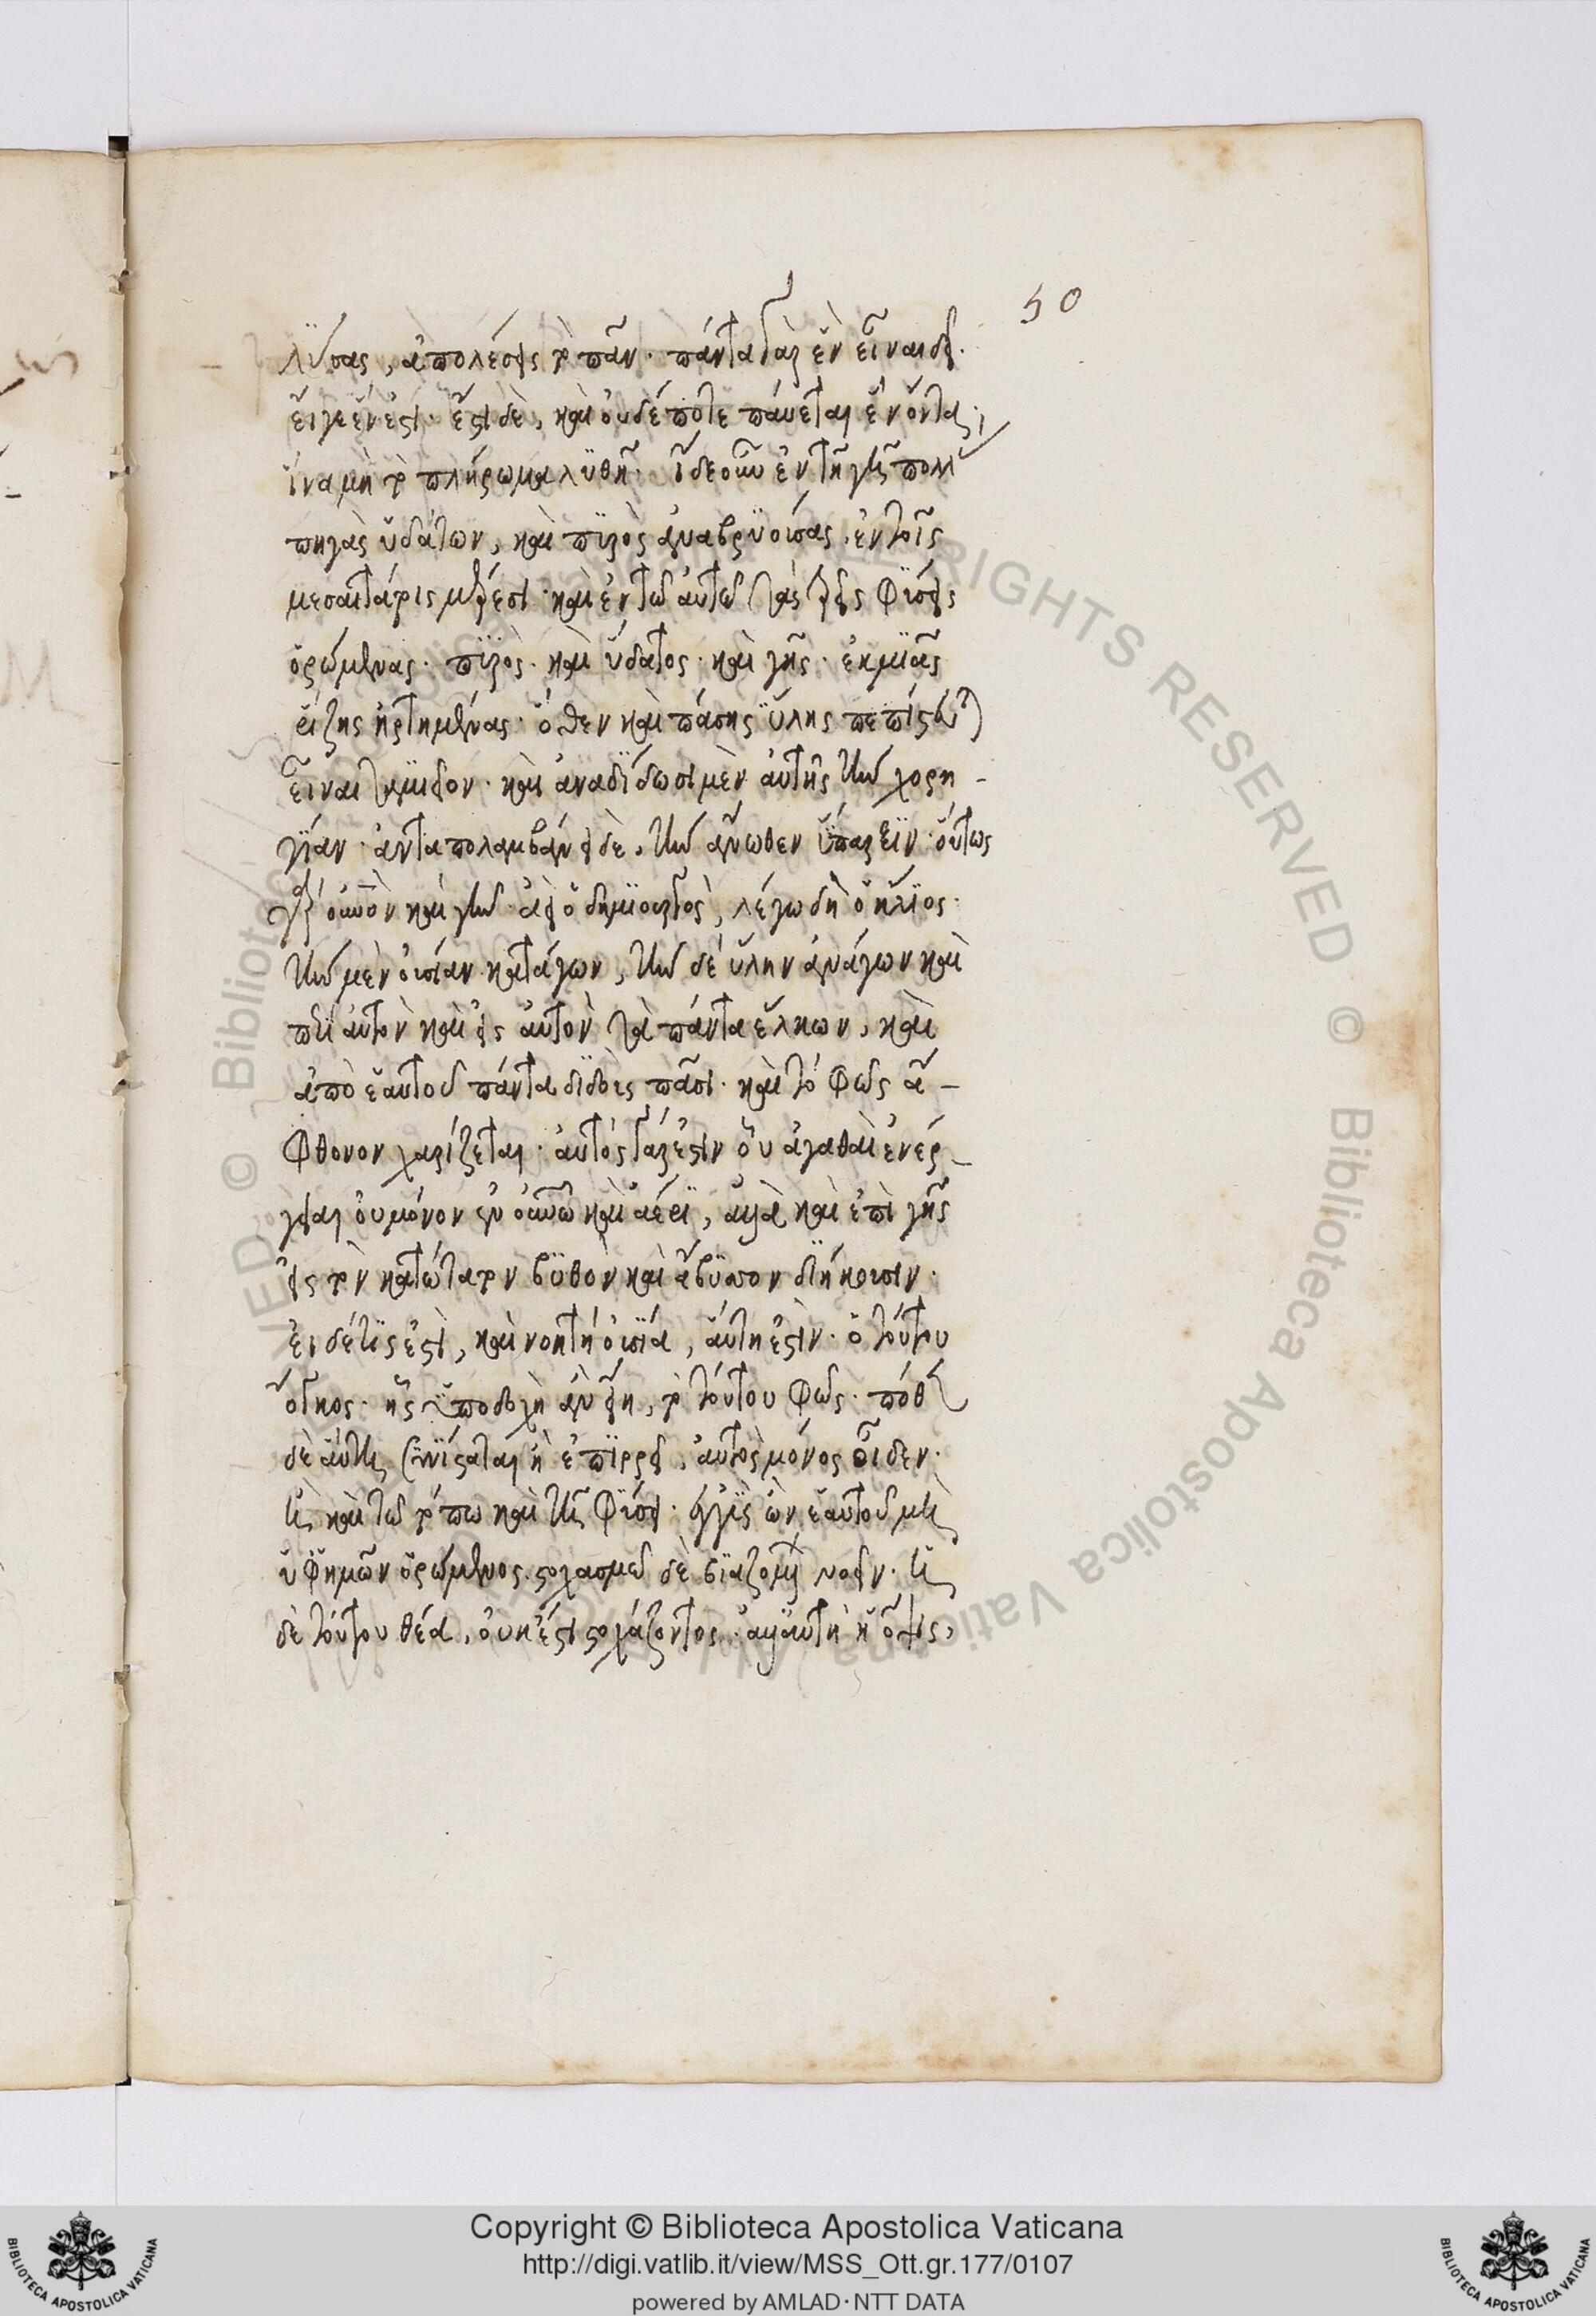 50
λύσας, ἀπολέσεις τὸ πᾶν. πάντα γὰρ ἓν εἶναι δεῖ.
εἴγε ἕν ἐστι. ἔστι δὲ, καὶ οὐδέποτε παύεται ἓν ὄντα,
ἵνα μὴ τὸ πλήρωμα λυθῇ. ἴδε οὖν ἐν τῇ γῇ πολλ
πηγὰς ὑδάτων, καὶ πυρὸς ἀναβρυούσας ἐν τοῖς
μεσαιτάτοις μέρεσι. καὶ ἐν τῷ αὐτῷ τὰς τρεῖς φύσεις
ὁρωμένας. πυρὸς. καὶ ὕδατος. καὶ γῆς. ἐκ μιᾶς
ῥίζης ἠρτημένας. ὅθεν καὶ πάσης ὕλης πεπίστευται
εἶναι ταμιεῖον. καὶ ἀναδίδωσι μὲν αὐτῆς τὴν χορη-
γίαν. ἀνταπολαμβάνει δὲ, τὴν ἄνωθεν ὕπαρξιν. οὕτως
γὰρ οὐρανὸν καὶ γῆν ἀεὶ ὁ δημιουργὸς, λέγω δὴ ὁ ἥλιος.
τὴν μὲν οὐσίαν κατάγων, τὴν δὲ ὕλην ἀνάγων καὶ
περὶ αὐτὸν καὶ εἰς αὐτὸν τὰ πάντα ἕλκων, καὶ
ἀπὸ ἑαυτοῦ πάντα διδοὺς πᾶσι. καὶ τὸ φῶς ἄ-
φθονον χαρίζεται. αὐτὸς γάρ ἐστιν οὗ ἀγαθαὶ ἐνέρ-
γειαι οὐ μόνον ἐν οὐρανῷ καὶ ἀέρι, ἀλλὰ καὶ ἐπὶ γῆς
εἰς τὸν κατώτατον βυθὸν καὶ ἄβυσσον διήκουσιν.
εἰ δέ τίς ἐστι, καὶ νοητὴ οὐσία, αὕτη ἐστὶν. ὁ τούτου
ὄγκος. ἧς ὑποδοχὴ ἂν εἴη, τὸ τούτου φῶς. πόθεν
δὲ αὕτη συνίσταται ἢ ἐπιρρεῖ, αὐτὸς μόνος οἶδεν.
ἢ καὶ τῷ τόπῳ καὶ τῇ φύσει. ἐγγὺς ὢν ἑαυτοῦ μὴ
ὑφ' ἡμῶν ὁρώμενος. στοχασμῷ δὲ βιαζομένων νοεῖν. ἡ
δὲ τούτου θέα, οὐκ ἔστι στοχάζοντος. ἀλλ' αὐτὴ ἡ ὄψις,
Copyright © Biblioteca Apostolica Vaticana
http://digi.vatlib.it/view/MSS_Ott.gr.177/0107
powered by AMLAD·NTT DATA